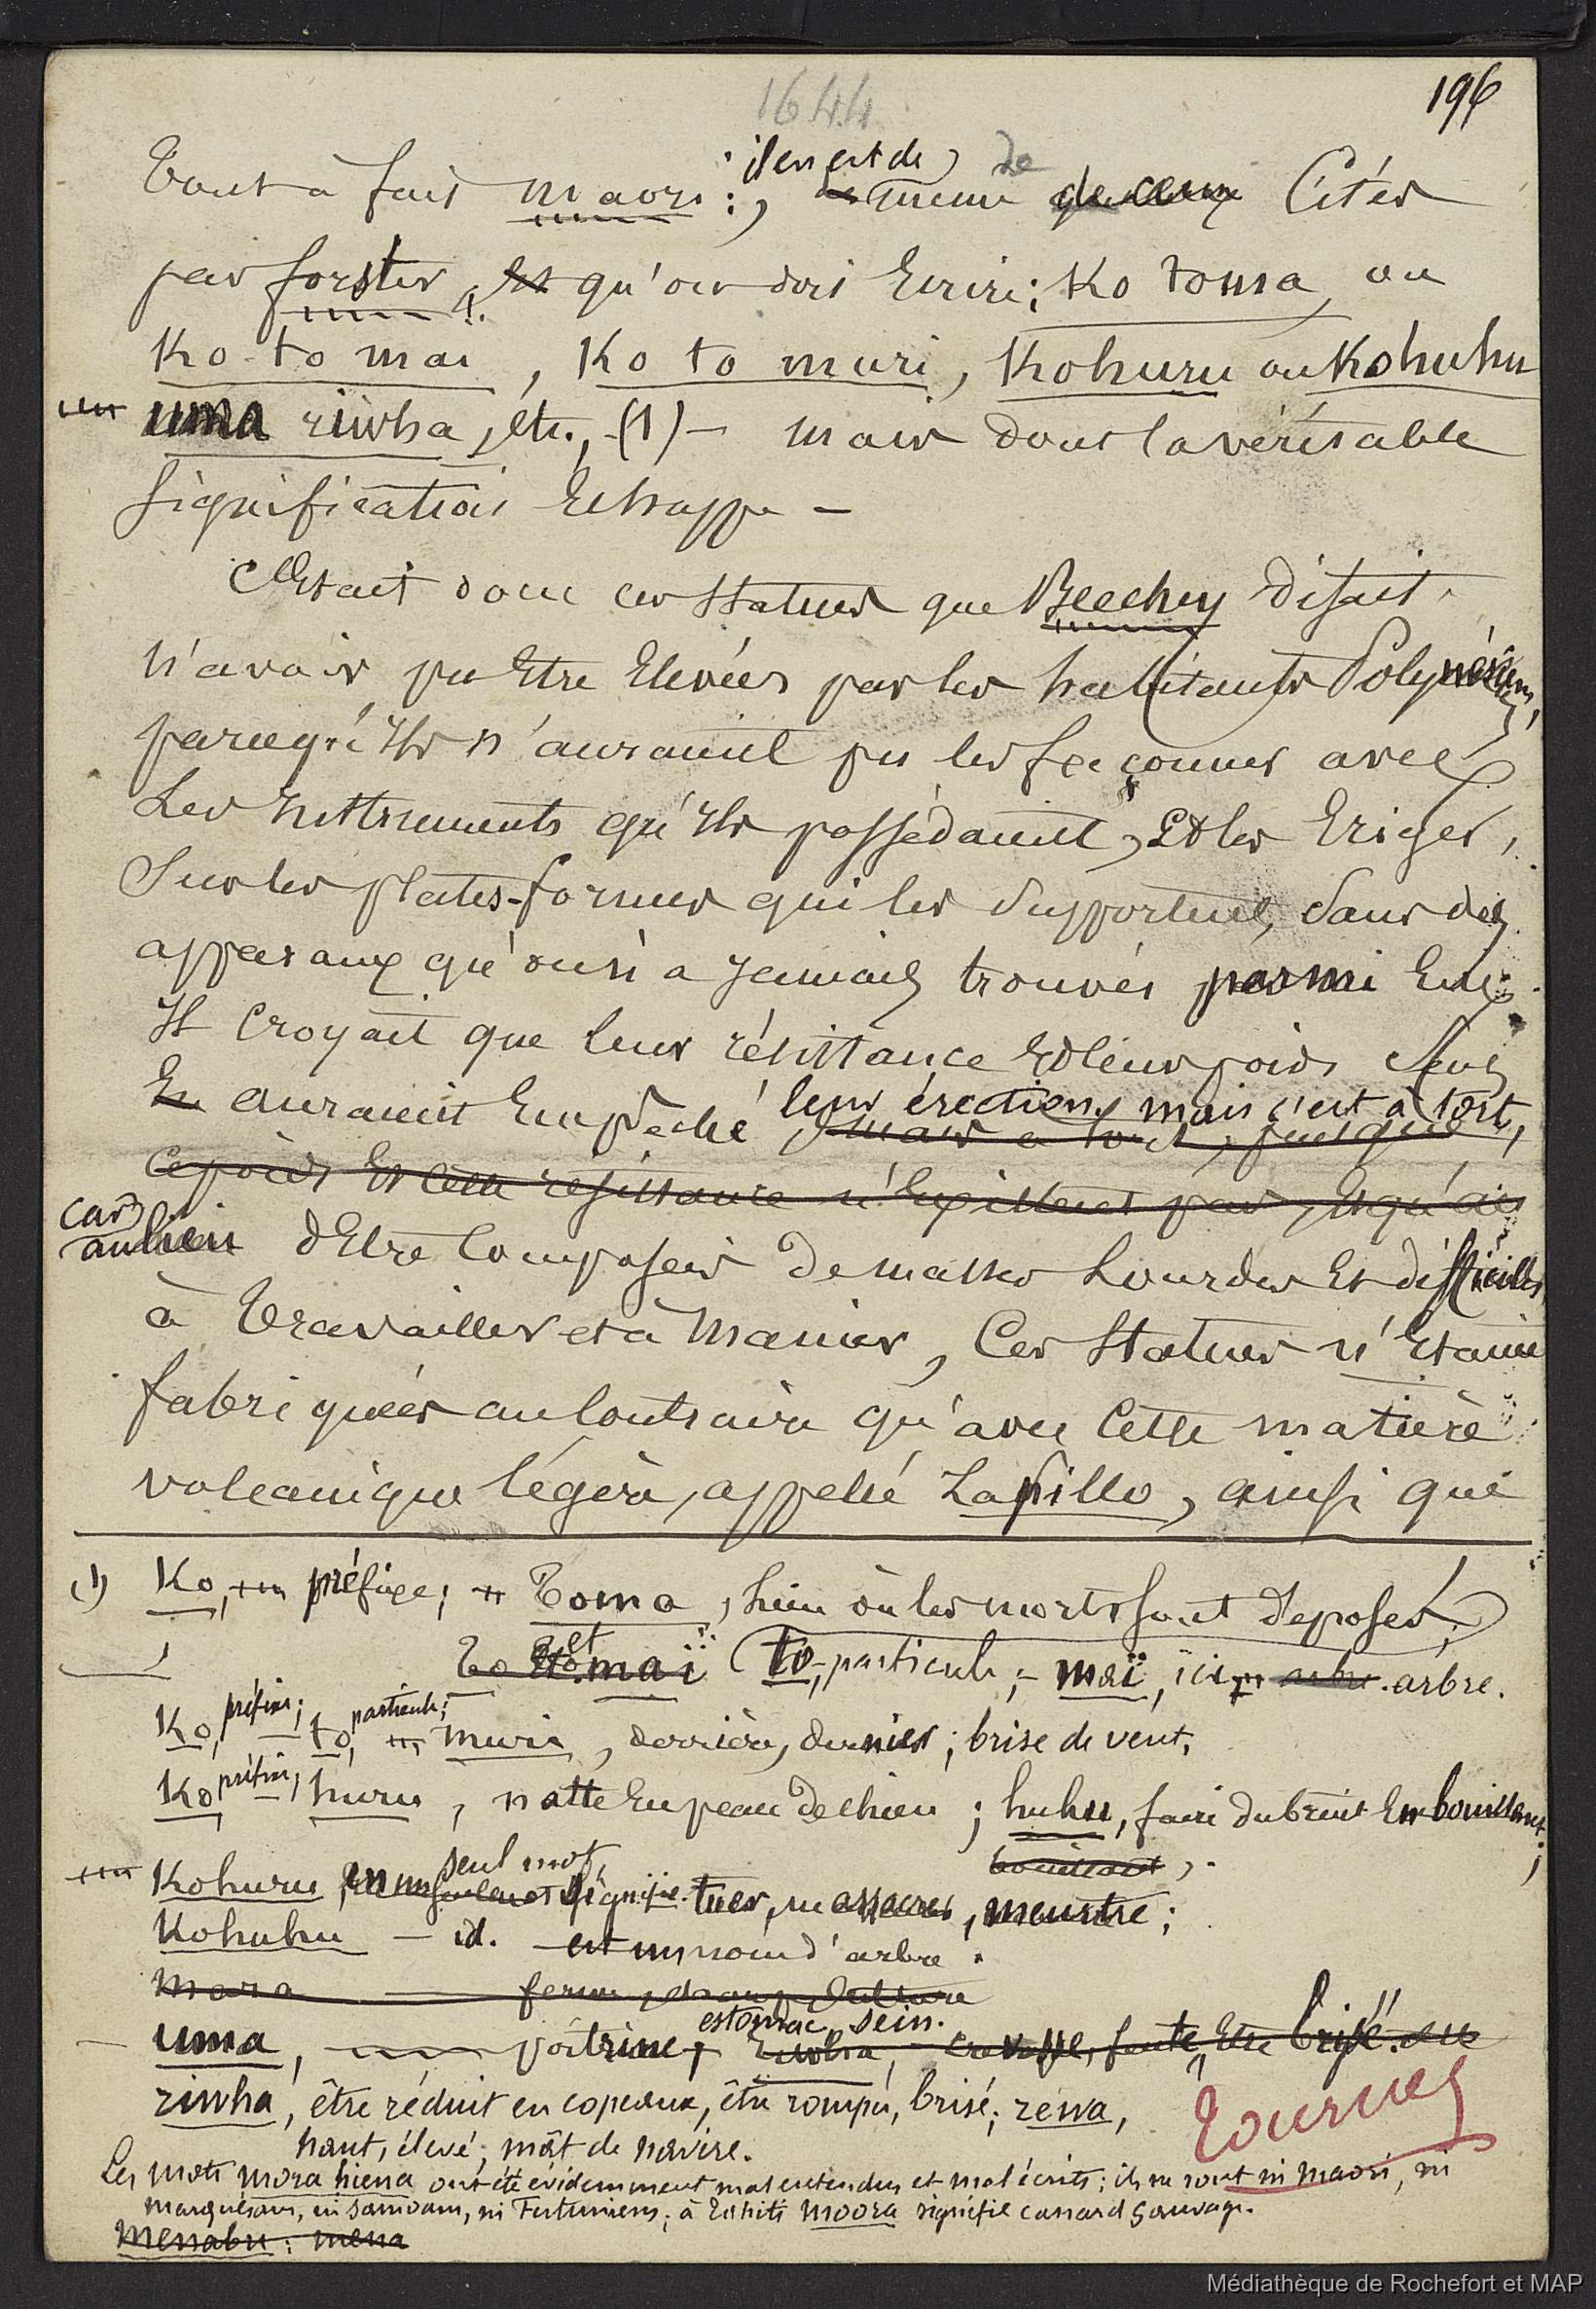 1644
196
il en est de
tout à fait maori ; de même de ceux cités
par forster, et qu'on doit Ecrire ; Ko toma, ou
Ko-to mai, Ko to muri, Kohuru ou Kohuhu
uma riwha, etc., (1) - mais dont la véritable
signification Echappe -
C'Etait donc ces statues que Beechey disait
n'avoir pu Etre Elevées par les habitants Polynésiens,
parcequ'ils n'auraient pu les façonner avec
Les Instruments qu'ils possédaient, Et les Eriger,
Sur les plates-formes qui les supportent, sans des
apparaux qu'on n'a jamais trouvés parmi Eux.
Il croyait que leur résistance Et leur poids seuls
En auraient Empêché leur érection, mais c'est à tort,
mais à tort, puisque
ce poids Et cette résistance n'Existent pas, Et qu'au
car
au lieu d'Etre Composées de masses Lourdes Et difficiles
à travailler et à Manier, Ces statues n'Etaient
fabriquées au contraire qu'avec cette matière
volcanique légère, appelée Lapillo, ainsi que
(1) Ko, préfixe ; Toma, lieu où les morts sont déposés ;
To et mai to, particule ; - maï, ici arbre. arbre.
Ko, préfixe ; - to, particule ; muri, derrière, dernier ; brise de vent,
Ko, préfixe, huru, natte En peau de chien ; huhu, faire du bruit En bouillant ;
bouillant,
seul mot,
Kohuru, en un seul mot signifie tuer, massacrer, meurtre ;
Kohuhu - id. - est un nom d'arbre.
mara
estomac, sein.
uma, poitrine, riwha, - crevasse, fente, Etre brisé.
riwha, être réduit en copeaux, être rompu, brisé ; rewa,
haut, élevé ; mât de navire.
Tournez
Les mots mora hiena ont été évidemment mal entendus et mal écrits ; ils ne sont ni maori, ni
marquésans, ni Samoans, ni Futuniens ; à Tahiti moora signifie canard sauvage.
Menabu : mena
Médiathèque de Rochefort et MAP